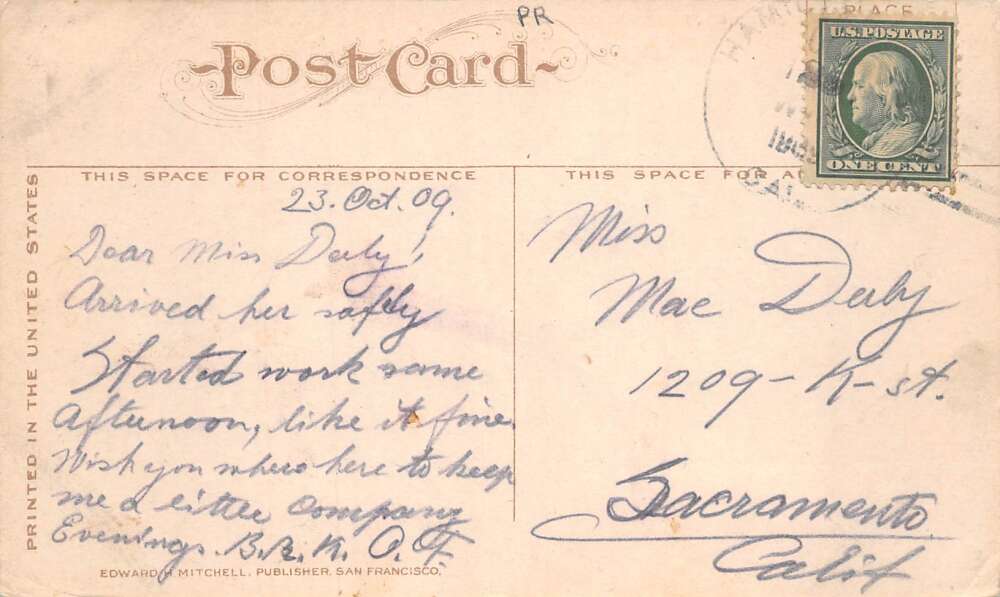 PR
Post Card
PLACE
U.S. POSTAGE
ONE CENT
THIS SPACE FOR CORRESPONDENCE
23. Oct. 09.
Dear Miss Daly!
Arrived her safly
Started work same
Afternoon, like it fine
Wish you where here to keep
me a little Company
Evenings. B.R.K. O.F.
EDWARD H MITCHELL, PUBLISHER, SAN FRANCISCO.
PRINTED IN THE UNITED STATES
THIS SPACE FOR
Miss
Mae Daly
1209 - K-st.
Sacramento
Calif